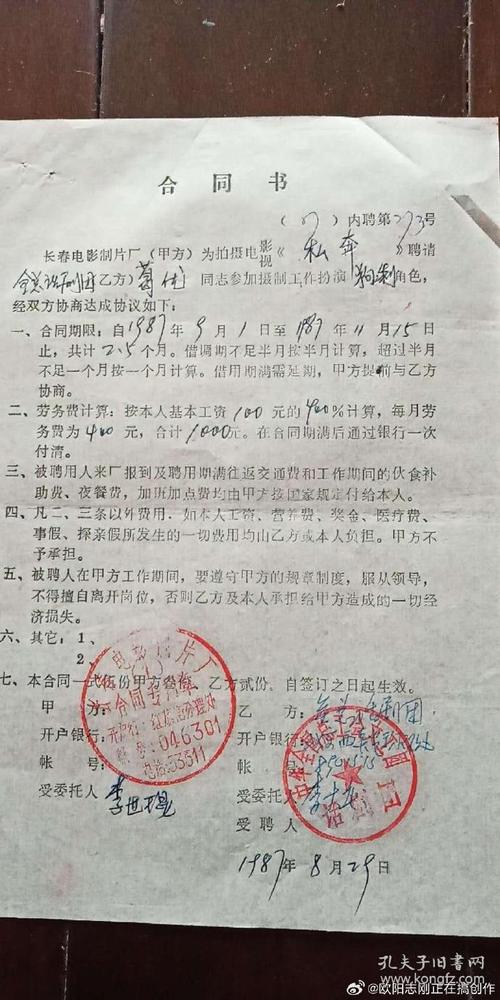 合同书
（87）内聘第273号
长春电影制片厂（甲方）为拍摄电影视《私奔》聘请
全总话剧团乙方）葛优 同志参加摄制工作扮演 角色，
经双方协商达成协议如下：
一、合同期限：自1987年9月1日至1987年11月15日
止，共计2.5个月。借调期不足半月按半月计算，超过半月
不足一个月按一个月计算。借用期满需延期，甲方提前与乙方
协商。
二、劳务费计算：按本人基本工资100元的400%计算，每月劳
务费为400元，合计1000元。在合同期满后通过银行一次
付清。
三、被聘用人来厂报到及聘用期满往返交通费和工作期间的伙食补
助费、夜餐费，加班加点费均由甲方按国家规定付给本人。
四、凡二、三条以外费用，如本人工资、营养费、奖金、医疗费、
事假、探亲假所发生的一切费用均由乙方或本人负担。甲方不
予承担。
五、被聘人在甲方工作期间，要遵守甲方的规章制度，服从领导，
不得擅自离开岗位，否则乙方及本人承担给甲方造成的一切经
济损失。
六、其它：1、
2、
七、本合同一式伍份甲方叁份，乙方贰份，自签订之日起生效。
甲方：
开户银行：
帐号：
受委托人 李世
电影制片厂
合同专用章
开户行：红旗街办理处
帐号：046301
电话：53311
乙方：全总话剧团
开户银行：
帐号：
受委托人
受聘人
中华全国总工会
话剧团
1987年8月29日
孔夫子旧书网
@欧阳志刚正在搞创作